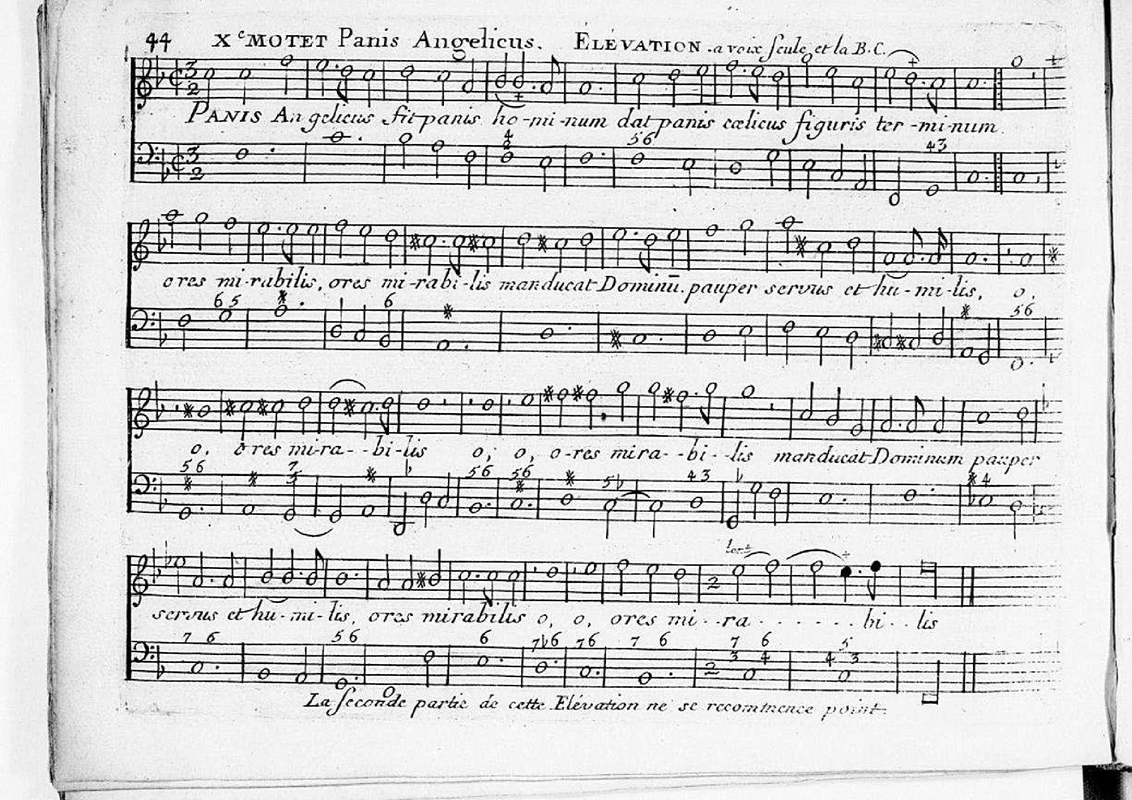 44 X.e MOTET Panis Angelicus. ELEVATION. a voix seule et la B.C.
PANIS An gelicus fit panis ho-mi-num dat panis cœlicus figuris ter-mi-num.
ores mi-rabilis, ores mi-rabi-lis manducat Dominū. pauper servus et hu-mi-lis, o,
o, ores mi-ra--bi-lis o, o, o-res mira--bi--lis manducat Dominum pauper
servus et hu-mi-lis, ores mirabilis o, o, ores mi--ra . . . . . . bi . . lis
La seconde partie de cette Elévation ne se recommence point.